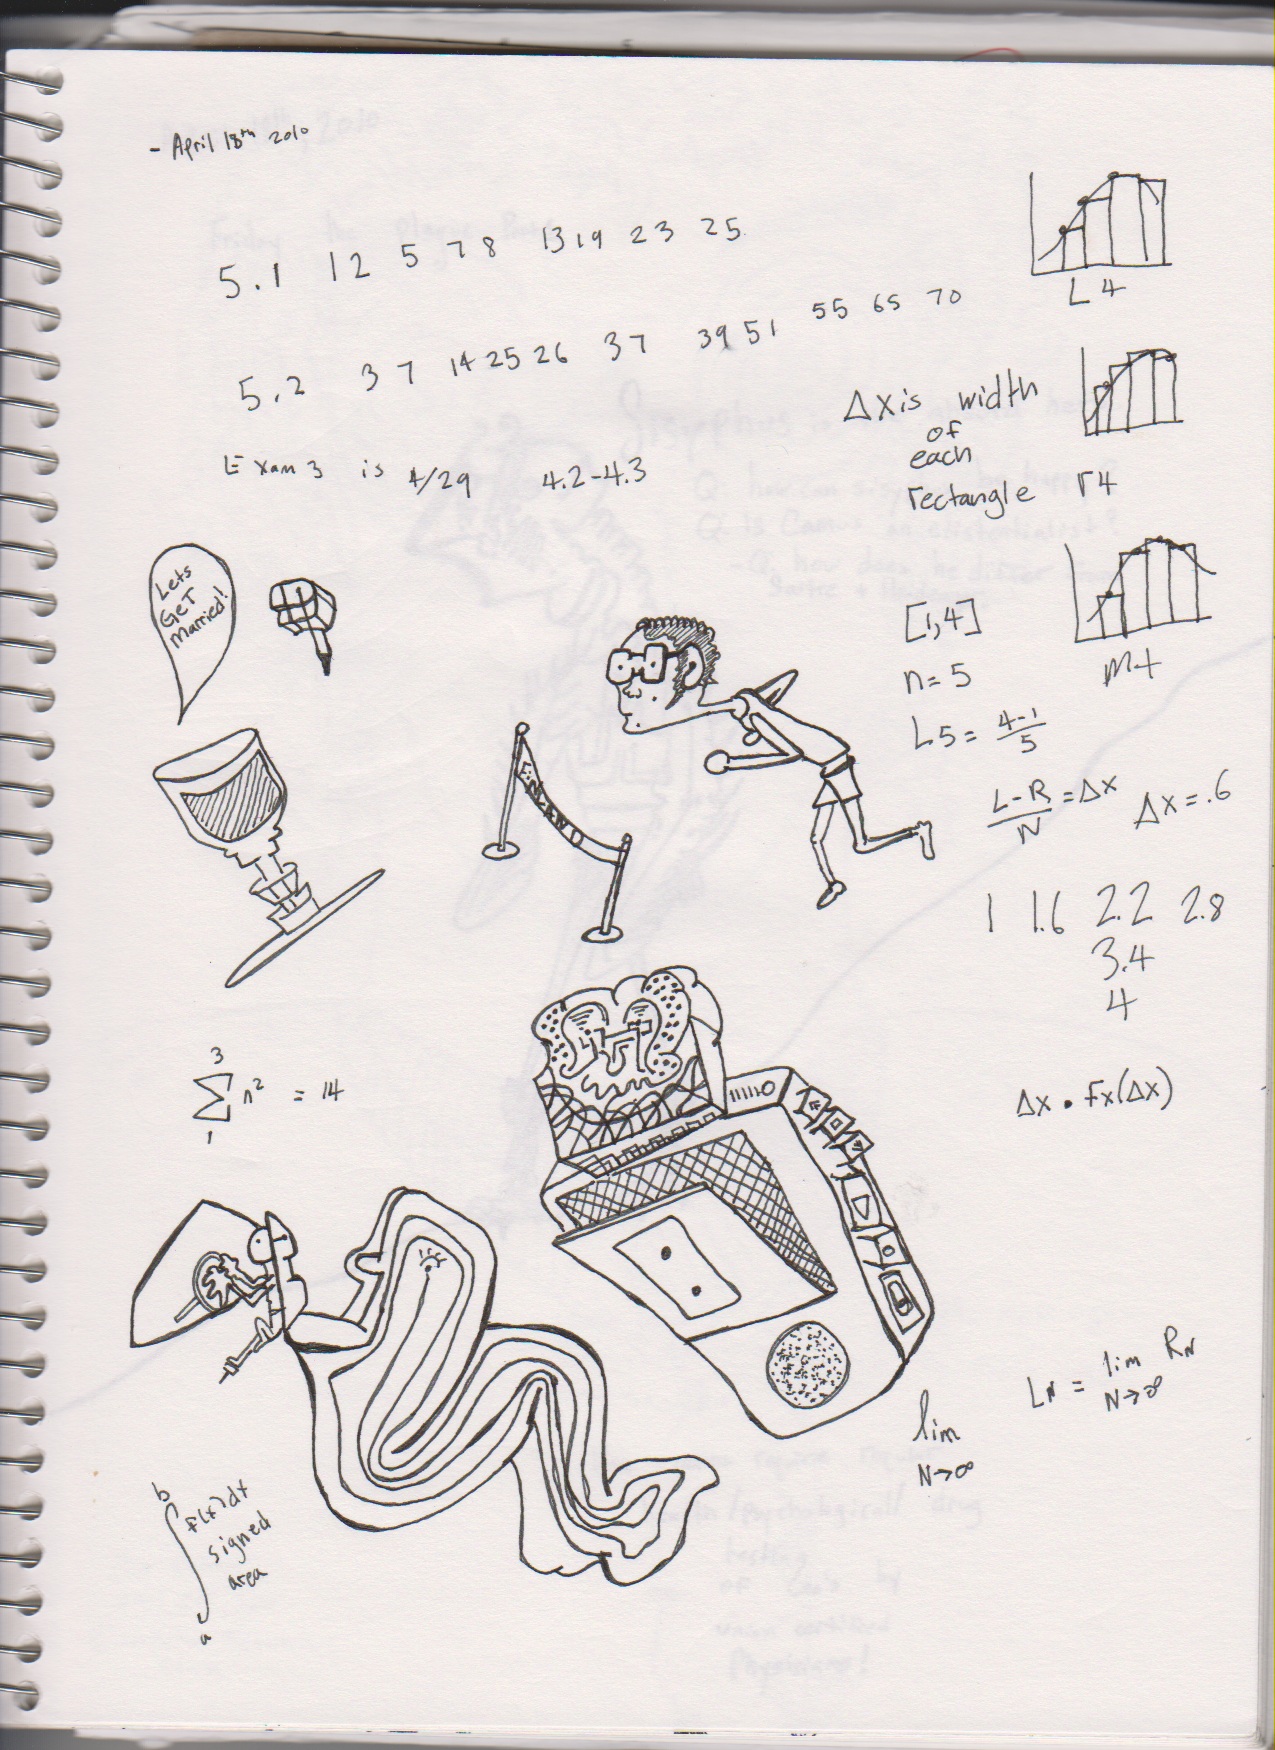 - April 18th 2010
5.1 1 2 5 7 8 13 19 23 25
5.2 3 7 14 25 26 37 39 51 55 65 70
Exam 3 is 4/29 4.2-4.3
L4
Δx is width
of
each
rectangle
r4
M4
Lets
GET
married!
[1,4]
n=5
L5 = 4-1/5
L-R/N = Δx Δx=.6
1 1.6 2.2 2.8
3.4
4
3
∑ n² = 14
1
Δx • fx(Δx)
LN = lim RN
N→∞
lim
N→∞
b
∫ f(x)dx
signed
area
a